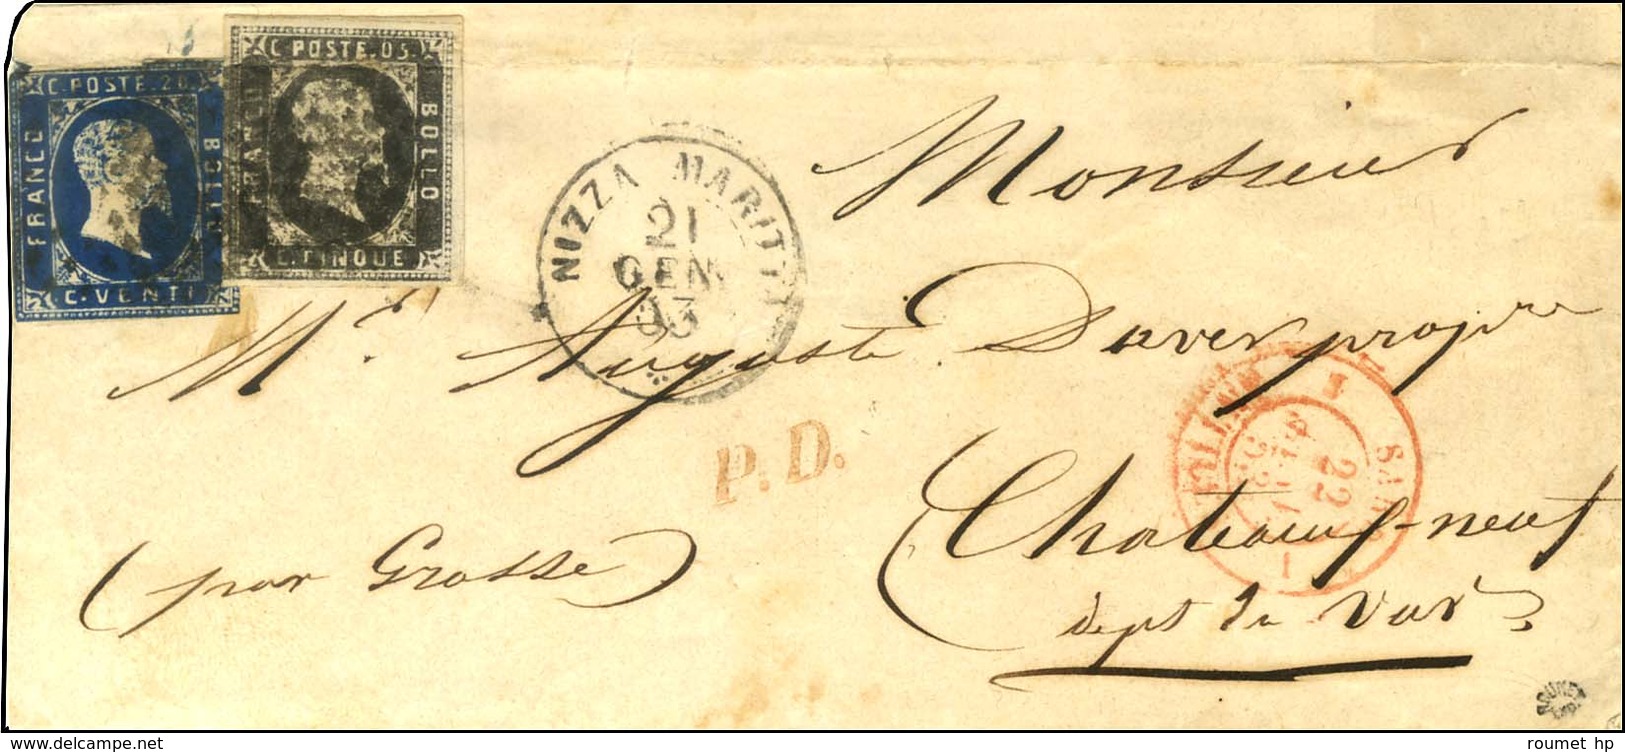 C. POSTE. 20.
FRANCO
BOLLO
C. VENTI
C. POSTE. 05.
FRANCO
BOLLO
C. CINQUE
NIZZA MARITT
21
GEN
53
Monsieur
Mr. Auguste Daver propre
P. D.
SARD.
22
JANV.
53
ANTIBES
Chateauf-neuf
(par Grasse)
dept du Var
ROUMET
Exp.
www.delcampe.net
roumet hp